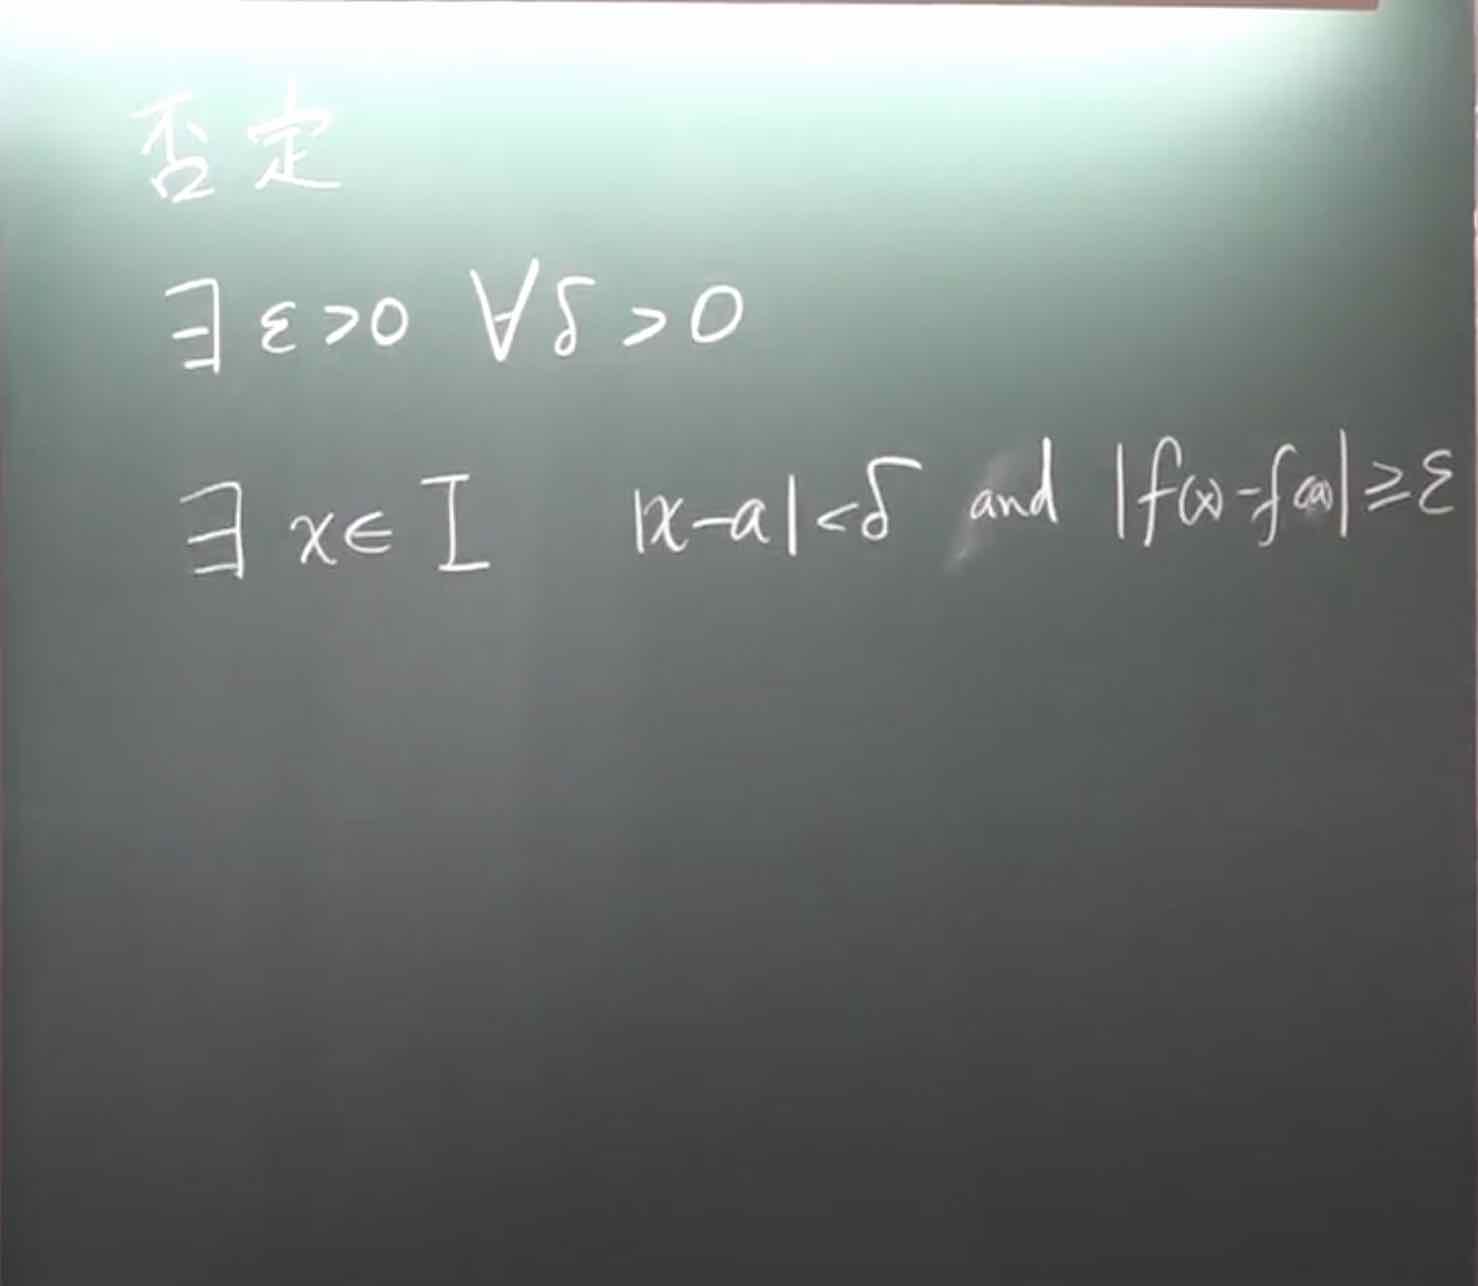 否定
∃ε>0 ∀δ>0
∃x∈I |x-a|<δ and |f(x)-f(a)|≥ε